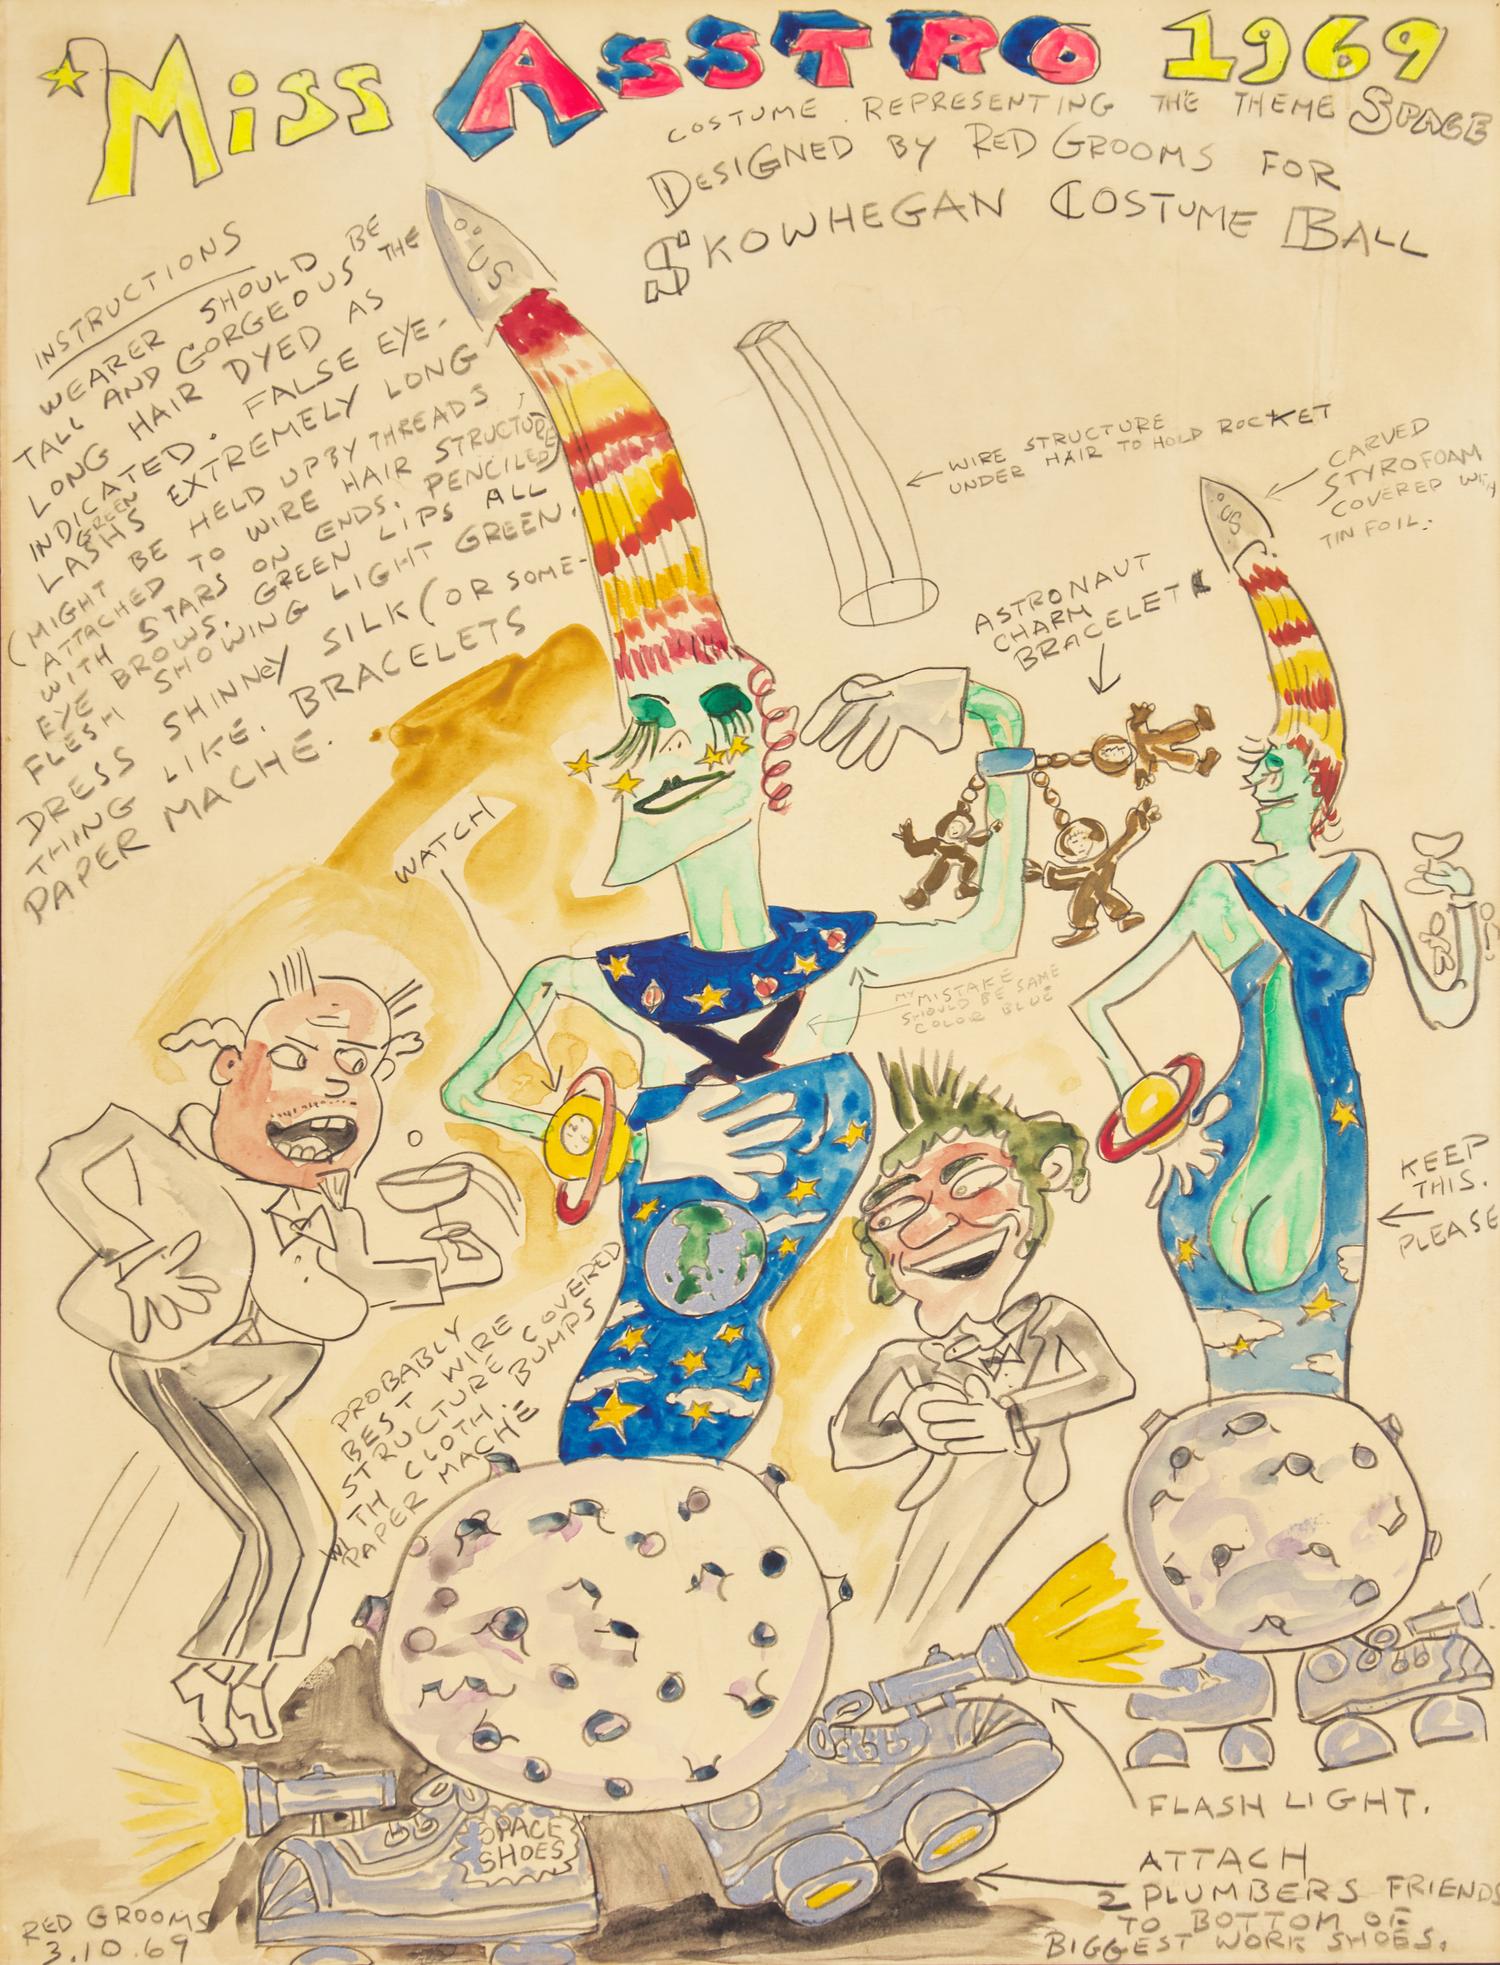 Miss ASSTRO 1969
COSTUME REPRESENTING THE THEME SPACE
DESIGNED BY RED GROOMS FOR
SKOWHEGAN COSTUME BALL
INSTRUCTIONS
WEARER SHOULD BE
TALL AND GORGEOUS THE
LONG HAIR DYED AS
INDICATED. FALSE EYE-
GREEN
LASHS EXTREMELY LONG
(MIGHT BE HELD UP BY THREADS
ATTACHED TO WIRE HAIR STRUCTURE)
WITH STARS ON ENDS. PENCILED
EYE BROWS. GREEN LIPS ALL
FLESH SHOWING LIGHT GREEN.
DRESS SHINNEY SILK (OR SOME-
THING LIKE. BRACELETS
PAPER MACHE.
US
WIRE STRUCTURE
UNDER HAIR TO HOLD ROCKET
CARVED
STYROFOAM
COVERED WITH
TIN FOIL.
US
ASTRONAUT
CHARM
BRACELET
WATCH
MY MISTAKE
SHOULD BE SAME
COLOR BLUE
KEEP
THIS.
PLEASE
PROBABLY
BEST WIRE
STRUCTURE COVERED
WITH CLOTH. BUMPS
PAPER MACHE
SPACE
SHOES
FLASH LIGHT.
ATTACH
2 PLUMBERS FRIENDS
TO BOTTOM OF
BIGGEST WORK SHOES.
RED GROOMS
3.10.69